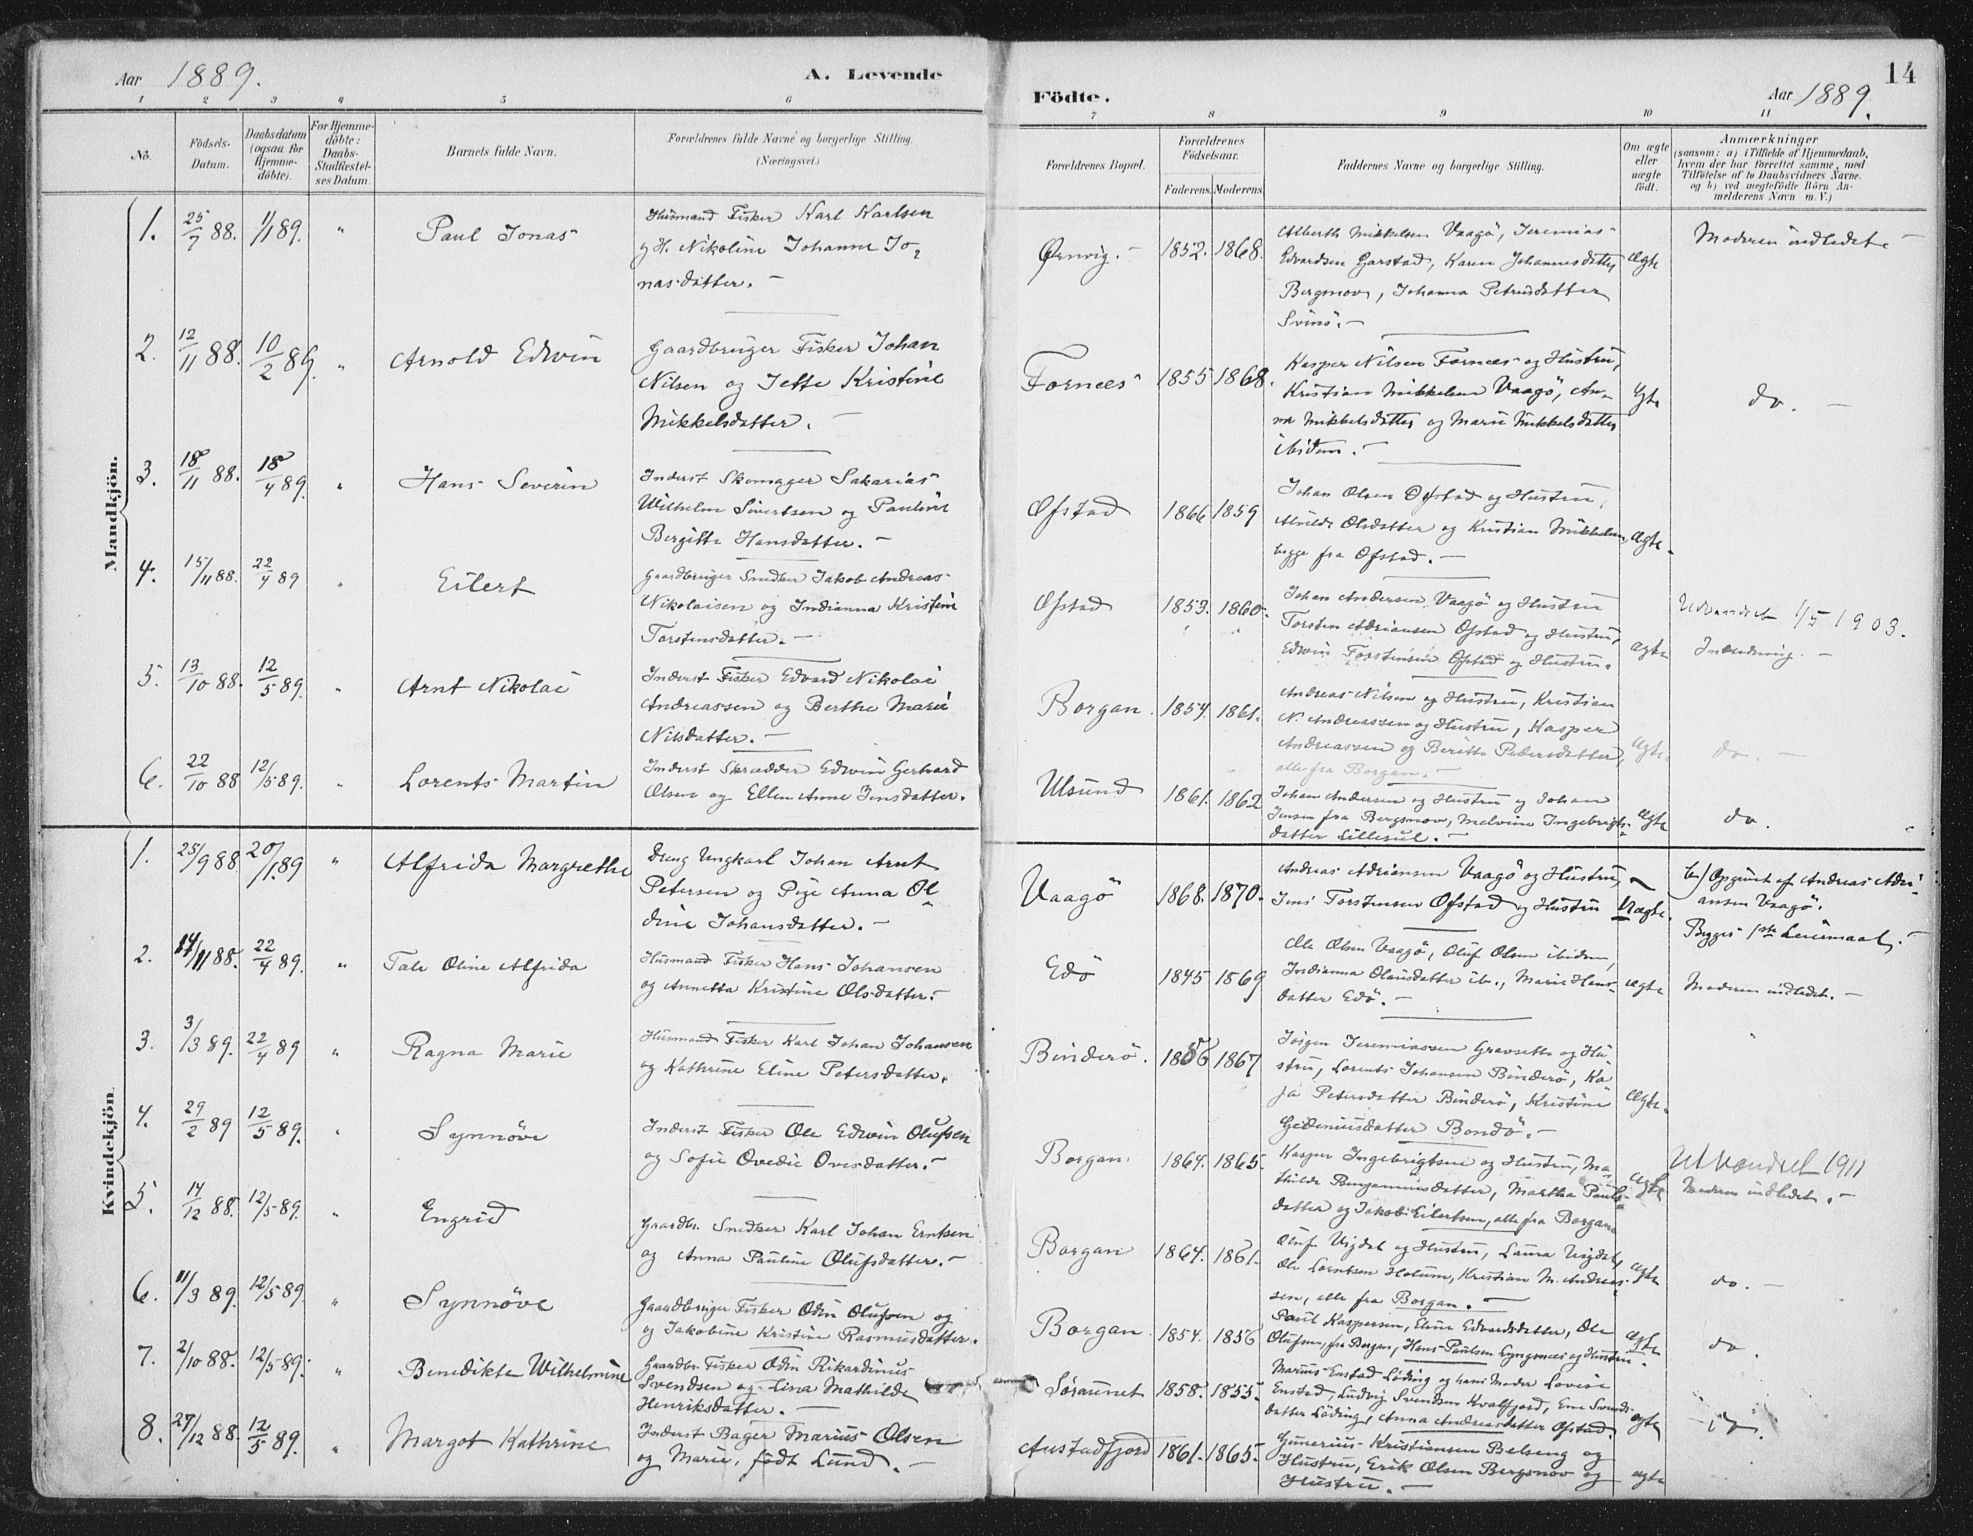 Aar 1889. A. Levende
1 2 3 4 5 6
No. Födsels-Datum. Daabsdatum (ogsaa for Hjemmedöbte). For Hjemmedöbte: Daabs-Stadfæstelses Datum. Barnets fulde Navn. Forældrenes fulde Navne og borgerlige Stilling. (Næringsvei.)
Mandkjön.
1. 25/7 88. 1/1 89. " Paul Jonas Husmand Fisker Karl Karlsen
og H. Nikoline Johanne Jo-
nasdatter. —
2. 12/11 88. 10/2 89. " Arnold Edvin Gaardbruger Fisker Johan
Nilsen og Jette Kristine
Mikkelsdatter. —
3. 18/11 88. 18/4 89. " Hans Severin Inderst Skomager Sakarias
Wilhelm Sivertsen og Pauline
Bergitte Hansdatter. —
4. 15/11 88. 22/4 89 " Eilert Gaardbruger Snedker Jakob Andreas
Nikolaisen og Indianna Kristine
Torstensdatter. —
5. 13/10 88. 12/5 89. " Arnt Nikolai Inderst Fisker Edvard Nikolai
Andreassen og Berthe Marie
Nilsdatter. —
6. 22/10 88 12/5 89. " Lorents Martin Inderst Skrædder Edvin Gerhard
Olsen og Ellen Anne Jensdatter.
Kvindekjön.
1. 25/9 88 20/1 89 " Alfrida Margrethe Dreng Ungkarl Johan Arnt
Petersen og Pige Anna Ol
dine Johansdatter. —
2. 14/11 88. 22/4 89. " Tale Oline Alfrida Husmand Fisker Hans Johansen
og Annetta Kristine Olsdatter. —
3. 3/3 89. 22/4 89 " Ragna Marie Husmand Fisker Karl Johan Johansen
og Kathrine Eline Petersdatter.
4. 29/2 89 12/5 89. " Synnöve Inderst Fisker Ole Edvin Olufsen
og Sofie Ovedie Ovesdatter. —
5. 14/12 88. 12/5 89. " Engrid Gaardbr. Snedker Karl Johan Erntsen
og Anna Pauline Olufsdatter. —
6. 11/3 89. 12/5 89. " Synnöve Gaardbruger Fisker Odin Olufsen og
og Jakobine Kristine Rasmusdatter.
7. 2/10 88. 12/5 89. " Benedikte Wilhelmine Gaardbr. Fisker Odin Rikardinus
Svendsen og Lina Mathilde
Henriksdatter. —
8. 27/12 88. 12/5 89. " Margot Kathrine Inderst Bager Marius Olsen
og Marie, födt Lund. —
Födte. Aar 1889. 14
7 8 9 10 11
Forældrenes Bopæl. Forældrenes Födselsaar. Faderens. Moderens. Faddernes Navne og borgerlige Stilling. Om ægte eller uægte födt. Anmærkninger (saasom: a) i Tilfælde af Hjemmedaab, hvem der har forrettet samme, med Tilföielse af to Daabsvidners Navne. og b) ved uægtefödte Börn Anmelderens Navn m. V.)
Ørnvig. — 1852. 1868. Alberth Mikkelsen Vaagö, Jeremias
Edvardsen Garstad, Karen Johannesdatter
Bergsnov, Johanna Petrusdatter
Svinö. — Ægte Moderen indledet —
Fornees 1855 1868. Kasper Nilsen Fornees og Hustru,
Kristian Mikkelsen Vaagö, An-
na Mikkelsdatter og Marie Mikkelsdatter
ibidem. — Ægte do. —
Øfstad 1866 1859 Johan Olsen Øfstad og Hustru,
Alvilde Olsdatter og Kristian Mikkelsen,
begge fra Øfstad. — Ægte.
Øfstad 1853. 1860. Johan Andersen Vaagö og Hustru
Torsten Adriansen Øfstad og Hustru,
Edvin Torstensen Øfstad og Hustru. Ægte Udvandret 1/5 1903.
Inledning. —
Borgan. 1854. 1861. Andreas Nilsen og Hustru, Kristian
N. Andreassen og Hustru, Kasper
Andreassen og Beritte Pedersdatter,
alle fra Borgan. — Ægte. do. —
Ulsund 1861. 1862 Johan Andersen og Hustru og Johan
Jensen fra Bergsnov, Melvine Ingebrigts-
datter Lillesul. — Ægte do.
Vaagö 1868. 1870. Andreas Adriansen Vaagö og Hustru,
Jens Torstensen Øfstad og Hustru Uægte. b) Opgivet af Andreas Adri-
ansen Vaagö.
Begges 1ste Leiermaal. —
Edö 1845 1869 Ole Olsen Vaagö, Oluf Olsen ibidem,
Indianna Olausdatter ib., Marie Hans-
datter Edö. — ægte Moderen indledet. —
Binderö. 1856 1867 Jörgen Jeremiassen Gravsette og Hu-
stru, Lorents Johansen Binderö, Ka
ja Petersdatter Binderö, Kristine
Gedeniusdatter Bondö. — Ægte. "
Borgan. 1864. 1865. Kasper Ingebrigtsen og Hustru, Ma-
thilde Benjaminsdatter, Martha Pauls-
datter og Jakob Eilertsen, alle fra Borgan. Ægte Utvandret 1911
Moderen indledet. —
Borgan 1864. 1861. Oluf Vigdal og Hustru, Laura Vigdal,
Ole Lorntsen Holum, Kristian M. Andreas-
sen, alle fra Borgan. — Ægte do. —
Borgan. 1854. 1856 Paul Kaspersen, Eline Edvardsdatter, Ole
Olufsen, fra Borgan, Hans Paulsen Lyngsnes og Hustru. Ægte do.
Söraunet 1858. 1855. Marius Enstad Löding og hans Moder Lovise
Enstad, Ludvig Svendsen Kvalfjord, Ene Svends-
datter Löding, Anna Andreasdatter Øfstad. ægte — do.
Austadfjord 1861. 1865. Gunerius Kristiansen Belseng og
Hustru, Erik Olsen Bergsnov og
Hustru. — ægte